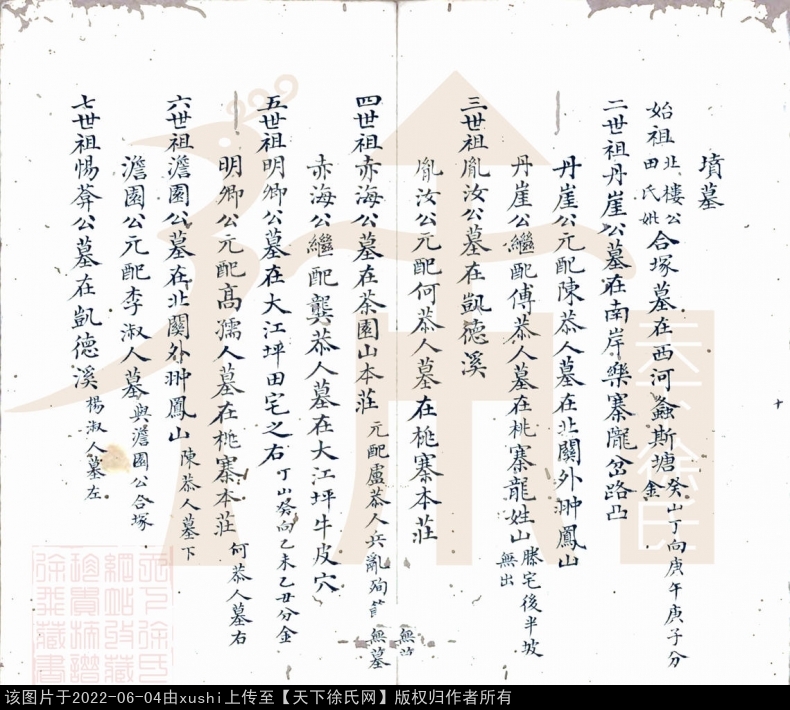 墳墓
始祖北樓公田氏妣合塚墓在西河螽斯塘癸山丁向庚午庚子分金
二世祖丹崖公墓在南岸樂寨龐岔路凸
丹崖公元配陳恭人墓在北關外翀鳳山
丹崖公繼配傅恭人墓在桃寨龍姓山滕宅後半坡無出
三世祖胤汝公墓在凱德溪
胤汝公元配何恭人墓在桃寨本莊
四世祖赤海公墓在茶園山本莊元配盧恭人兵亂殉 無墓
赤海公繼配龔恭人墓在大江坪牛皮穴
五世祖明卿公墓在大江坪田宅之右丁山癸向乙未乙丑分金
明卿公元配高孺人墓在桃寨本莊何恭人墓右
六世祖澹園公墓在北關外翀鳳山陳恭人墓下
澹園公元配李淑人墓與澹園公合塚
七世祖惕葊公墓在凱德溪楊淑人墓左
天下徐氏
该图片于2022-06-04由xushi上传至【天下徐氏网】版权归作者所有